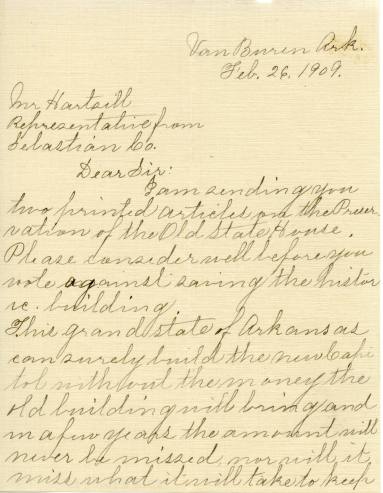 Van Buren Ark.
Feb. 26, 1909.
Mr Hartsill
Representative from
Sebastian Co.
Dear Sir:
I am sending you
two printed articles on the Preser
vation of the Old State House.
Please consider well before you
vote against saving the histor
ic. building.
This grand state of Arkansas
can surely build the new Capi
tol without the money the
old building will bring and
in a few years the amount will
never be missed, nor will it
miss what it will take to keep